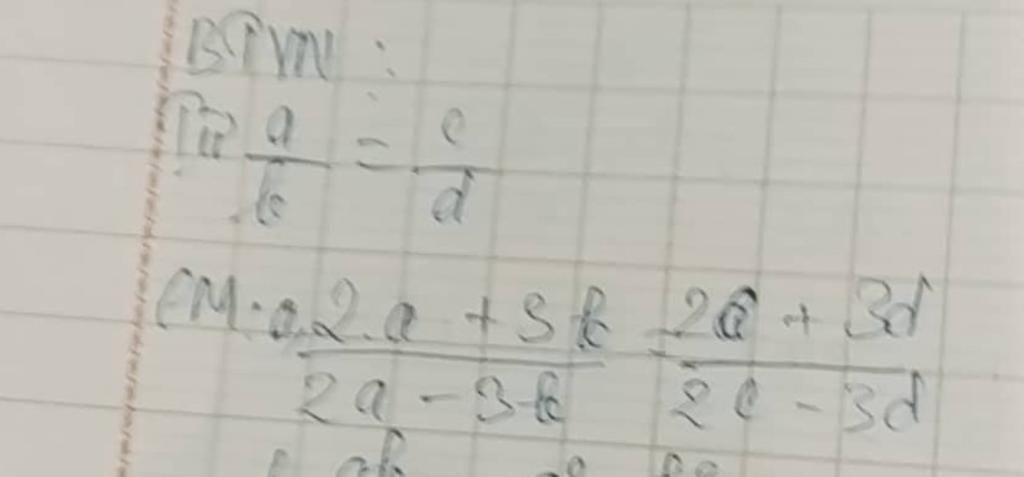 BTVN :
Từ a/b = c/d
CM: a. 2.a + 3b / 2a - 3b = 2c + 3d / 2c - 3d